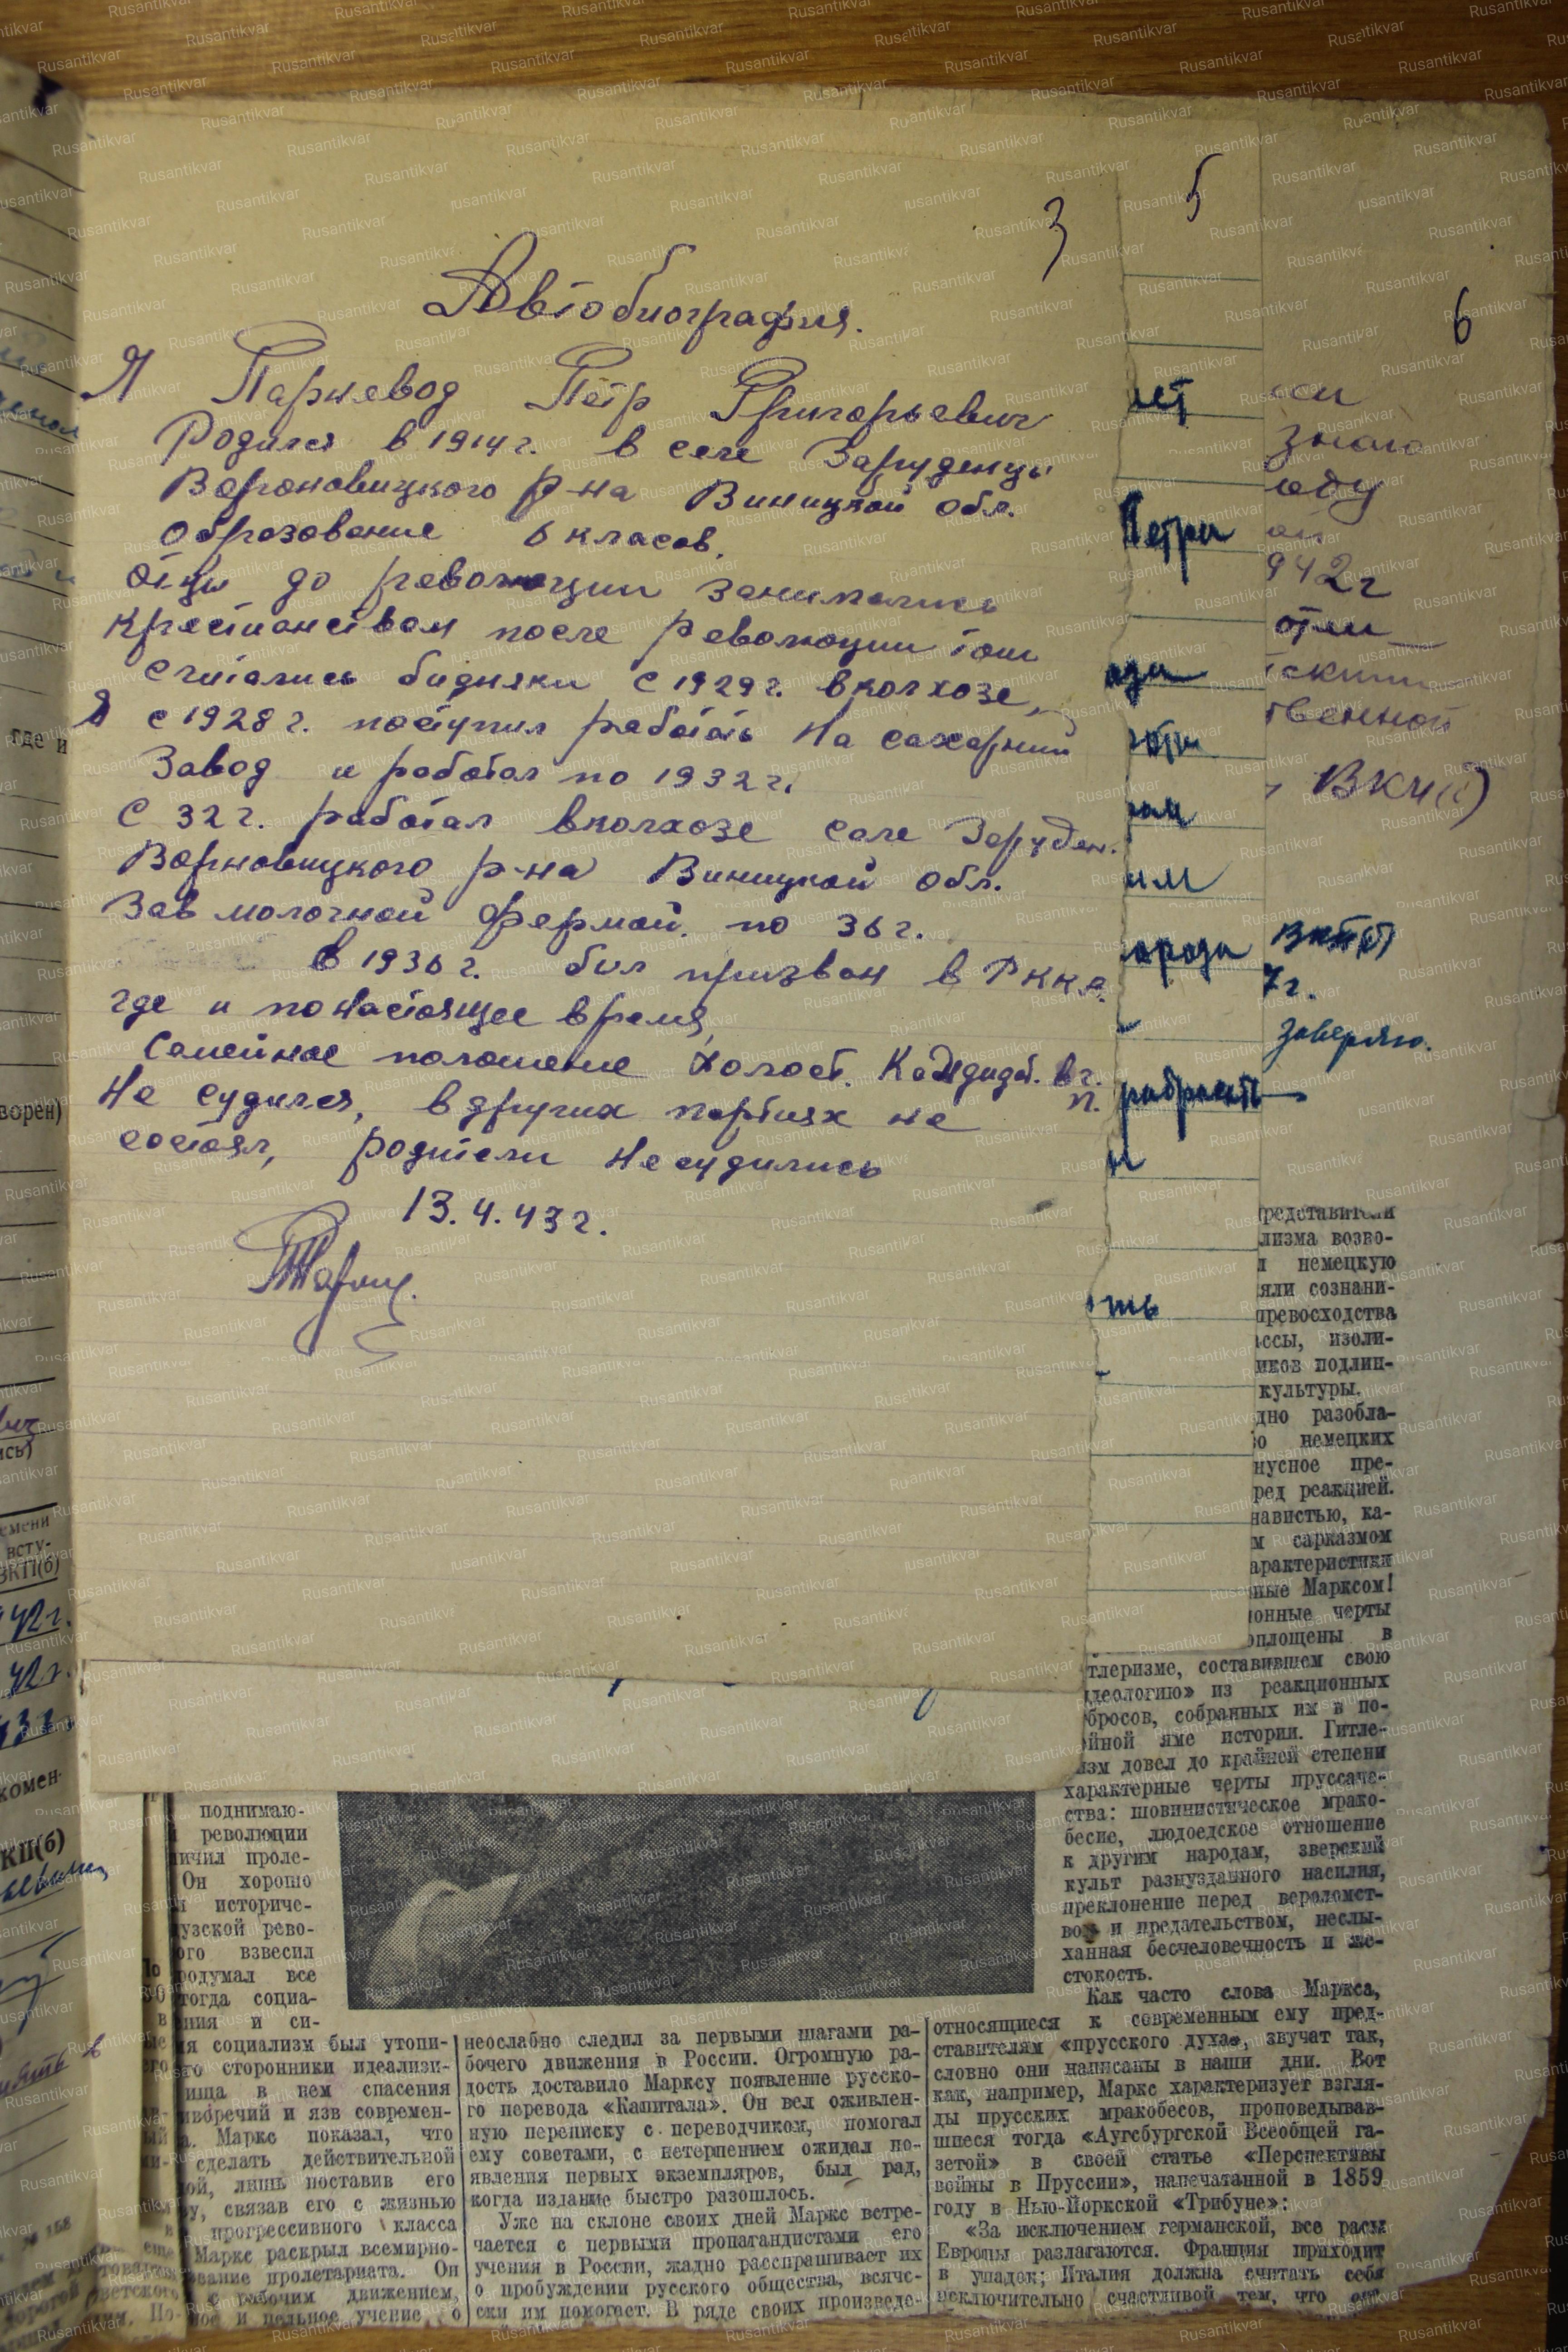 3
Автобиография.
Я Парневод Петр Григорьевич
Родился в 1914 г. в селе Заруденцы
Вороновицкого р-на Виницкой обл.
Образование 6 класов.
Отцы до революции занимались
крестианством после революции тош
считались бидняки с 1929 г. в колхозе,
Я с 1928 г. поступил работать на сахарний
завод и работал по 1932 г.
С 32 г. работал в колхозе селе Заруден.
Ворновицкого р-на Виницкой обл.
Зав молочной фермой. по 36 г.
в 1936 г. бил призван в РККА.
где и по настоящее время,
Семейное положение холост. Кандидат. в г.
п.
Не судился, в других партиях не
состоял, родители не судились
13.4.43 г.
5
лет
Петра
ом
им
города
ть
6
знаю
оду
942 г
отли
твенной
ВКП(б)
ВКП(б)
7 г.
заверяю.
где и
ворен)
ись)
емени
всту-
ВКП(б)
42 г.
42 г.
43 г.
комен-
КП(б)
представители
лизма возво-
л немецкую
яли сознани-
превосходства
ссы, изоли-
иков подлин-
культуры.
дно разобла-
о немецких
нусное пре-
ред реакцией.
навистью, ка-
м сарказмом
арактеристики
ные Марксом!
онные черты
оплощены в
тлеризме, составившем свою
идеологию» из реакционных
бросов, собранных им в по-
ойной яме истории. Гитле-
изм довел до крайней степени
характерные черты пруссаче-
ства: шовинистическое мрако-
бесие, людоедское отношение
к другим народам, зверский
культ разнузданного насилия,
преклонение перед вероломст-
вом и предательством, неслы-
ханная бесчеловечность и же-
стокость.
Как часто слова Маркса,
относящиеся к современным ему пред-
ставителям «прусского духа», звучат так,
словно они написаны в наши дни. Вот
как, например, Маркс характеризует взгля-
ды прусских мракобесов, проповедывав-
шиеся тогда «Аугсбургской Всеобщей га-
зетой» в своей статье «Перспективы
войны в Пруссии», напечатанной в 1859
году в Нью-Йоркской «Трибуне»:
«За исключением германской, все расы
Европы разлагаются. Франция приходит
в упадок; Италия должна считать себя
исключительно счастливой тем, что
поднимаю-
революции
ичил проле-
Он хорошо
и историче-
узской рево-
ого взвесил
родумал все
тогда социа-
ения и си-
ия социализм был утопи-
его сторонники идеализи-
ища в нем спасения
иворечий и язв современ-
а. Маркс показал, что
сделать действительной
ой, лишь поставив его
ву, связав его с жизнью
прогрессивного класса
Маркс раскрыл всемирно-
ование пролетариата. Он
с рабочим движением,
ное и цельное учение о
неослабно следил за первыми шагами ра-
бочего движения в России. Огромную ра-
дость доставило Марксу появление русско-
го перевода «Капитала». Он вел оживлен-
ную переписку с переводчиком, помогал
ему советами, с нетерпением ожидал по-
явления первых экземпляров, был рад,
когда издание быстро разошлось.
Уже на склоне своих дней Маркс встре-
чается с первыми пропагандистами его
учения в России, жадно расспрашивает их
о пробуждении русского общества, всяче-
ски им помогает. В ряде своих произведе-
Rusantikvar